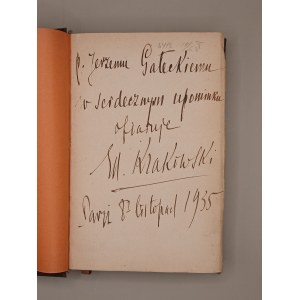 p. Jerzemu Gałeckiemu
w serdecznym upominku
ofiaruje
Ed. Krakowski
Paryż 8 listopad 1935